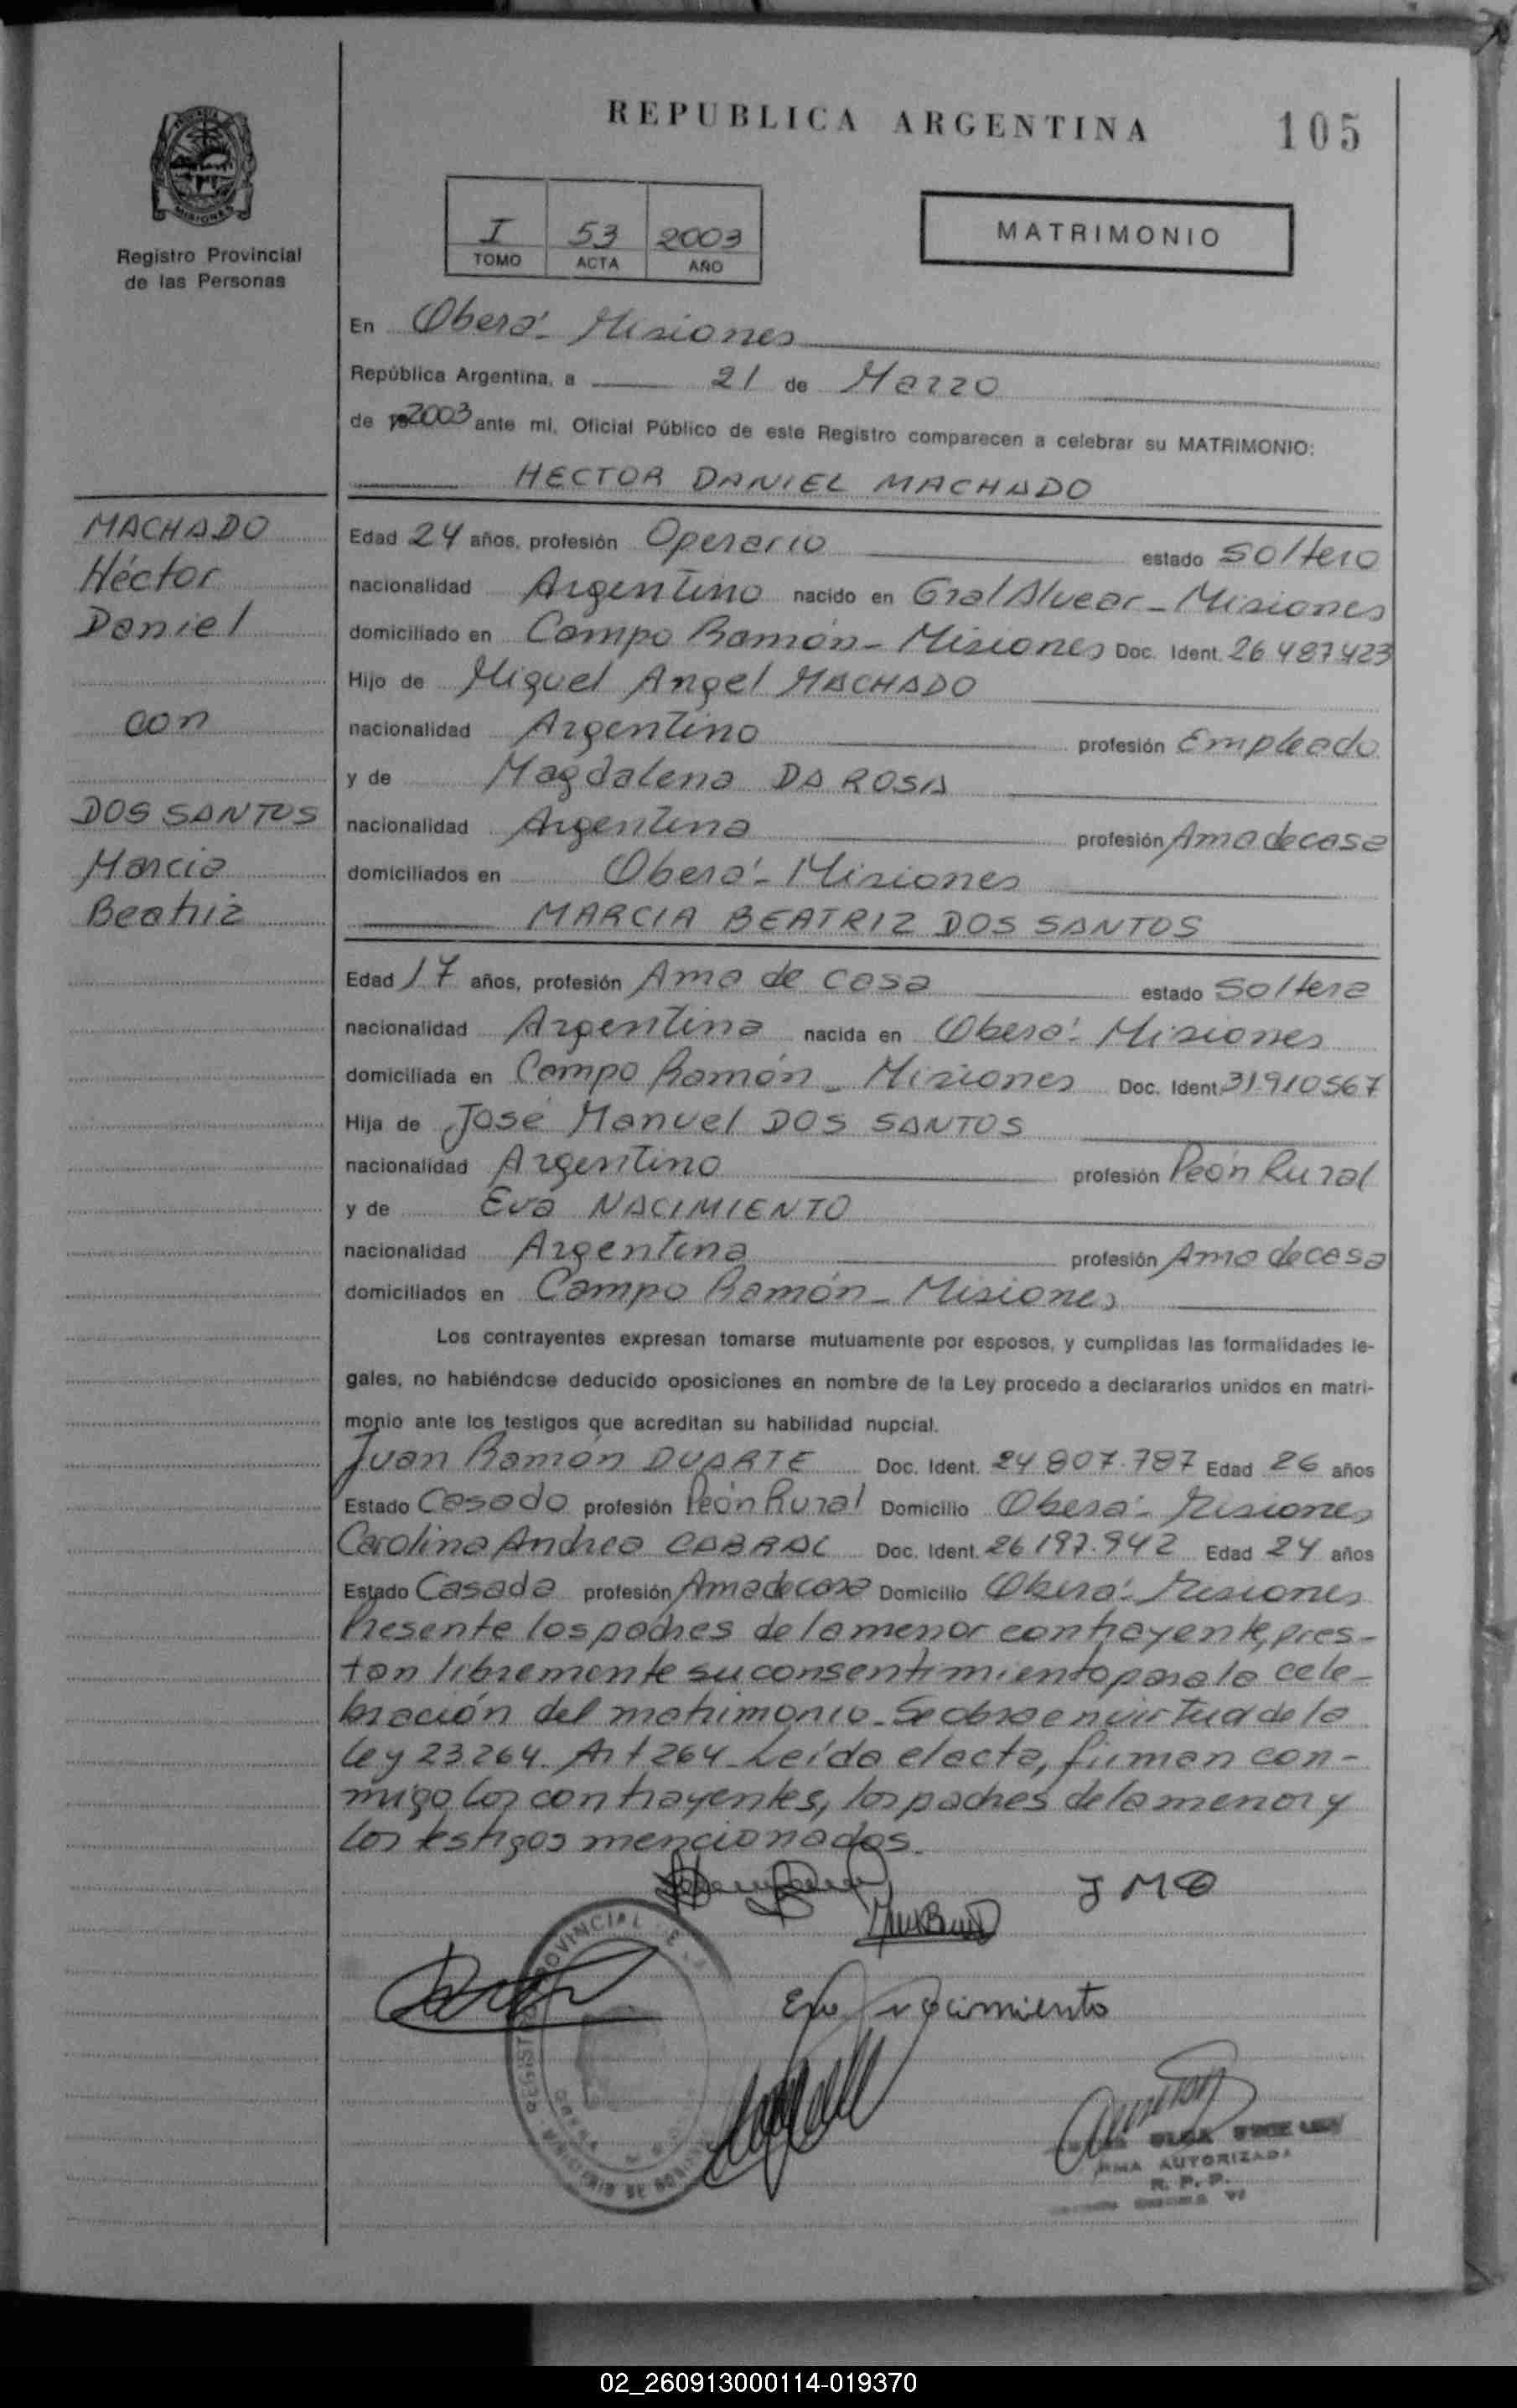 REPUBLICA ARGENTINA 105
MISIONES
Registro Provincial
de las Personas
I 53 2003
TOMO ACTA AÑO
MATRIMONIO
En Oberá - Misiones
República Argentina, a 21 de Marzo
de 2003 ante mi, Oficial Público de este Registro comparecen a celebrar su MATRIMONIO:
HECTOR DANIEL MACHADO
MACHADO
Héctor
Daniel
con
DOS SANTOS
Marcia
Beatriz
Edad 24 años, profesión Operario estado Soltero
nacionalidad Argentino nacido en Gral Alvear - Misiones
domiciliado en Campo Ramón - Misiones Doc. Ident. 26 487 423
Hijo de Miguel Angel MACHADO
nacionalidad Argentino profesión Empleado
y de Magdalena DA ROSA
nacionalidad Argentina profesión Ama de casa
domiciliados en Oberá - Misiones
MARCIA BEATRIZ DOS SANTOS
Edad 17 años, profesión Ama de casa estado Soltera
nacionalidad Argentina nacida en Oberá - Misiones
domiciliada en Campo Ramón - Misiones Doc. Ident. 31.910567
Hija de José Manuel DOS SANTOS
nacionalidad Argentino profesión Peón Rural
y de Eva NACIMIENTO
nacionalidad Argentina profesión Ama de casa
domiciliados en Campo Ramón - Misiones
Los contrayentes expresan tomarse mutuamente por esposos, y cumplidas las formalidades le-
gales, no habiéndose deducido oposiciones en nombre de la Ley procedo a declararlos unidos en matri-
monio ante los testigos que acreditan su habilidad nupcial.
Juan Ramón DUARTE Doc. Ident. 24 807.787 Edad 26 años
Estado Casado profesión Peón Rural Domicilio Oberá - Misiones
Carolina Andrea CABRAL Doc. Ident. 26 197.942 Edad 24 años
Estado Casada profesión Ama de casa Domicilio Oberá - Misiones
Presente los padres de la menor contrayente, pres-
tan libremente su consentimiento para la cele-
bración del matrimonio. Se obra en virtud de la
Ley 23.264. Art 264. Leída el acta, firman con-
migo los contrayentes, los padres de la menor y
los testigos mencionados.
J M D
Eva nacimiento
AUTORIZADA
R. P. P.
02_260913000114-019370